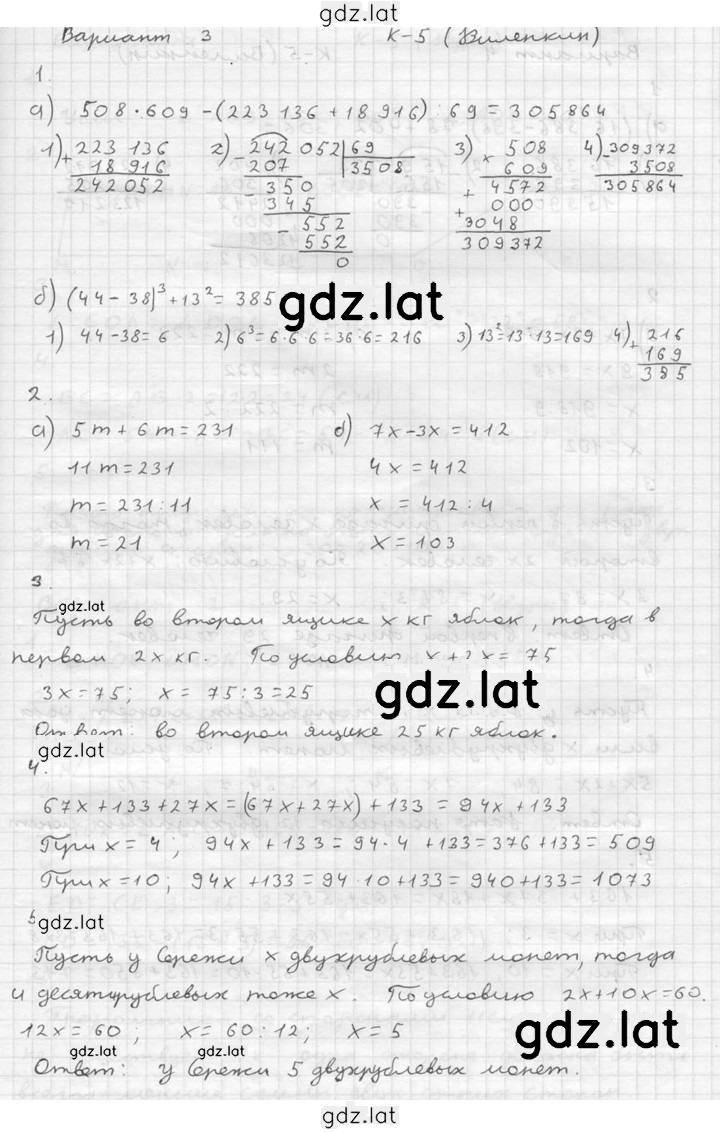 gdz.lat
Вариант 3 К-5 (Виленкин)
1.
а) 508·609-(223 136+18 916):69=305 864
1) 223 136 2) 242 052 69 3) 508 4) 309372
+ 18 916 - 207 3508 × 609 - 3508
242 052 350 4572 305 864
- 345 + 000
552 + 3048
- 552 309372
0
б) (44-38)³+13²=385
gdz.lat
1) 44-38=6 2) 6³=6·6·6=36·6=216 3) 13²=13·13=169 4) 216
+ 169
385
2.
а) 5m+6m=231 б) 7x-3x=412
11m=231 4x=412
m=231:11 x=412:4
m=21 x=103
3.
gdz.lat
Пусть во втором ящике x кг яблок, тогда в
первом 2x кг. По условию x+2x=75
3x=75; x=75:3=25
gdz.lat
Ответ: во втором ящике 25 кг яблок.
gdz.lat
4.
67x+133+27x=(67x+27x)+133=94x+133
При x=4; 94x+133=94·4+133=376+133=509
При x=10; 94x+133=94·10+133=940+133=1073
5 gdz.lat
Пусть у Сережи x двухрублевых монет, тогда
и десятирублевых тоже x. По условию 2x+10x=60.
12x=60; x=60:12; x=5
gdz.lat
gdz.lat gdz.lat
Ответ: у Сережи 5 двухрублевых монет.
gdz.lat